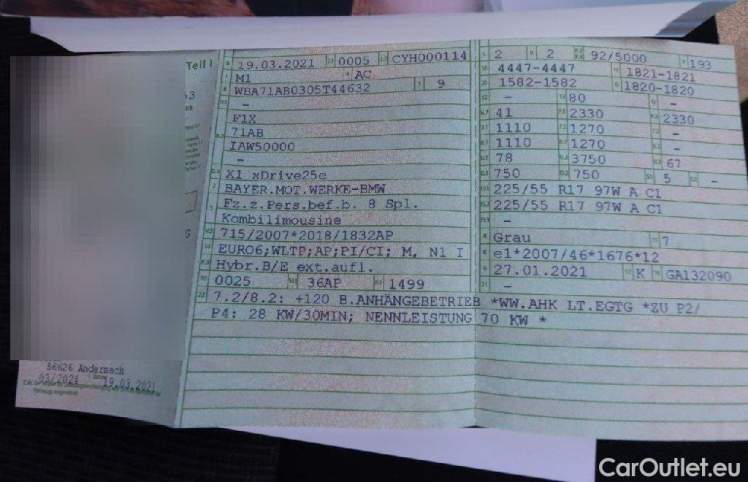 Teil I
19.03.2021 0005 CYH000114
M1 AC
WBA71AB0305T44632 9
-
F1X
71AB
IAW50000
-
X1 xDrive25e
BAYER.MOT.WERKE-BMW
Fz.z.Pers.bef.b. 8 Spl.
Kombilimousine
715/2007*2018/1832AP
EURO6;WLTP;AP;PI/CI; M, N1 I
Hybr.B/E ext.aufl.
0025 36AP 1499
2 2 92/5000 193
4447-4447 1821-1821
1582-1582 1820-1820
- 80 -
41 2330 2330
1110 1270 -
1110 1270 -
78 3750 67
750 750 5 -
225/55 R17 97W A C1
225/55 R17 97W A C1
-
Grau 7
e1*2007/46*1676*12
27.01.2021 K GA132090
-
7.2/8.2: +120 B.ANHÄNGEBETRIEB *WW.AHK LT.EGTG *ZU P2/
P4: 28 KW/30MIN; NENNLEISTUNG 70 KW *
56626 Andernach
03/2024 19.03.2021
CarOutlet.eu